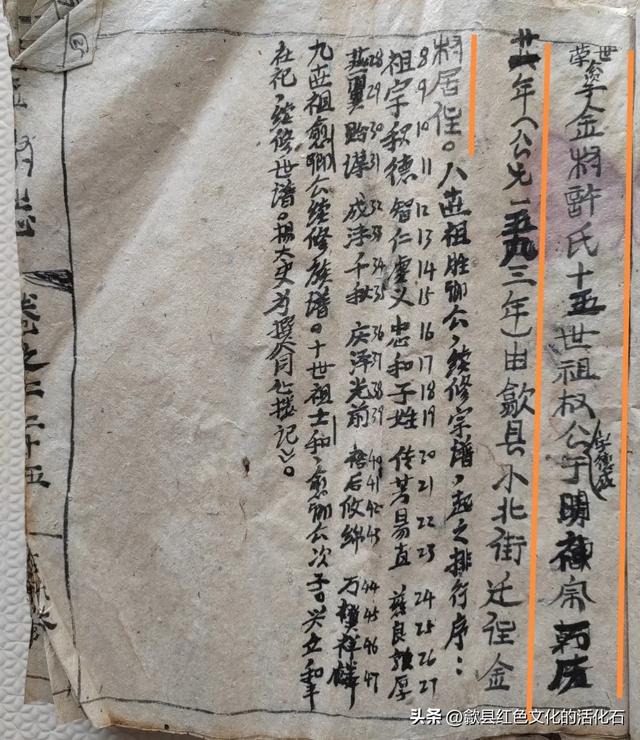 金村許氏十五世祖权公于明神宗萬历
廿一年（公元一五九三年）由歙县小北街迁往金
村居住。八世祖胜卿公，续修宗谱，起之排行序：
8 9 10 11 12 13 14 15 16 17 18 19 20 21 22 23 24 25 26 27
祖宗积德 智仁 义 忠和子姓 传芳易直 慈良 厚
28 29 30 31 32 33 34 35 36 37 38 39 40 41 42 43 44 45 46 47
燕翼贻谋 成 千秋 庆泽光前 裕后攸绵 万 祥麟
九世祖愈卿公续修族谱。十世祖士和，愈卿公次子。兴立和平
社祀，续修世谱。杨大史为撰《 记》。
卷之二 十五
头条 @歙县红色文化的活化石